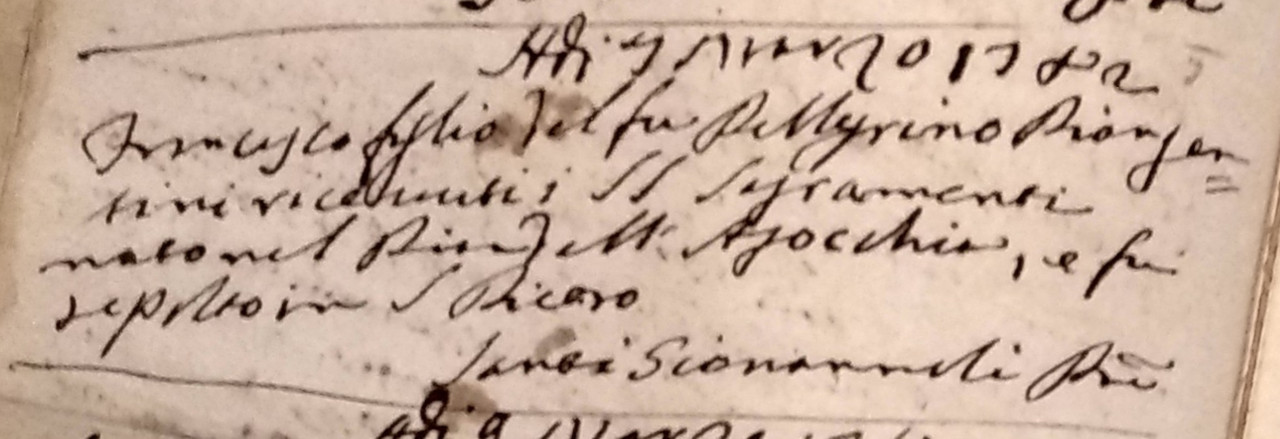 Adi 7 Marzo 1782
Francesco figlio del fu Pellegrino Piangen=
tini ricevuti i SS Sagramenti
nato nel Pian dell' Agocchia, e fu
sepolto in S Piero
Santi Giovannelli
Adi 9 Marzo